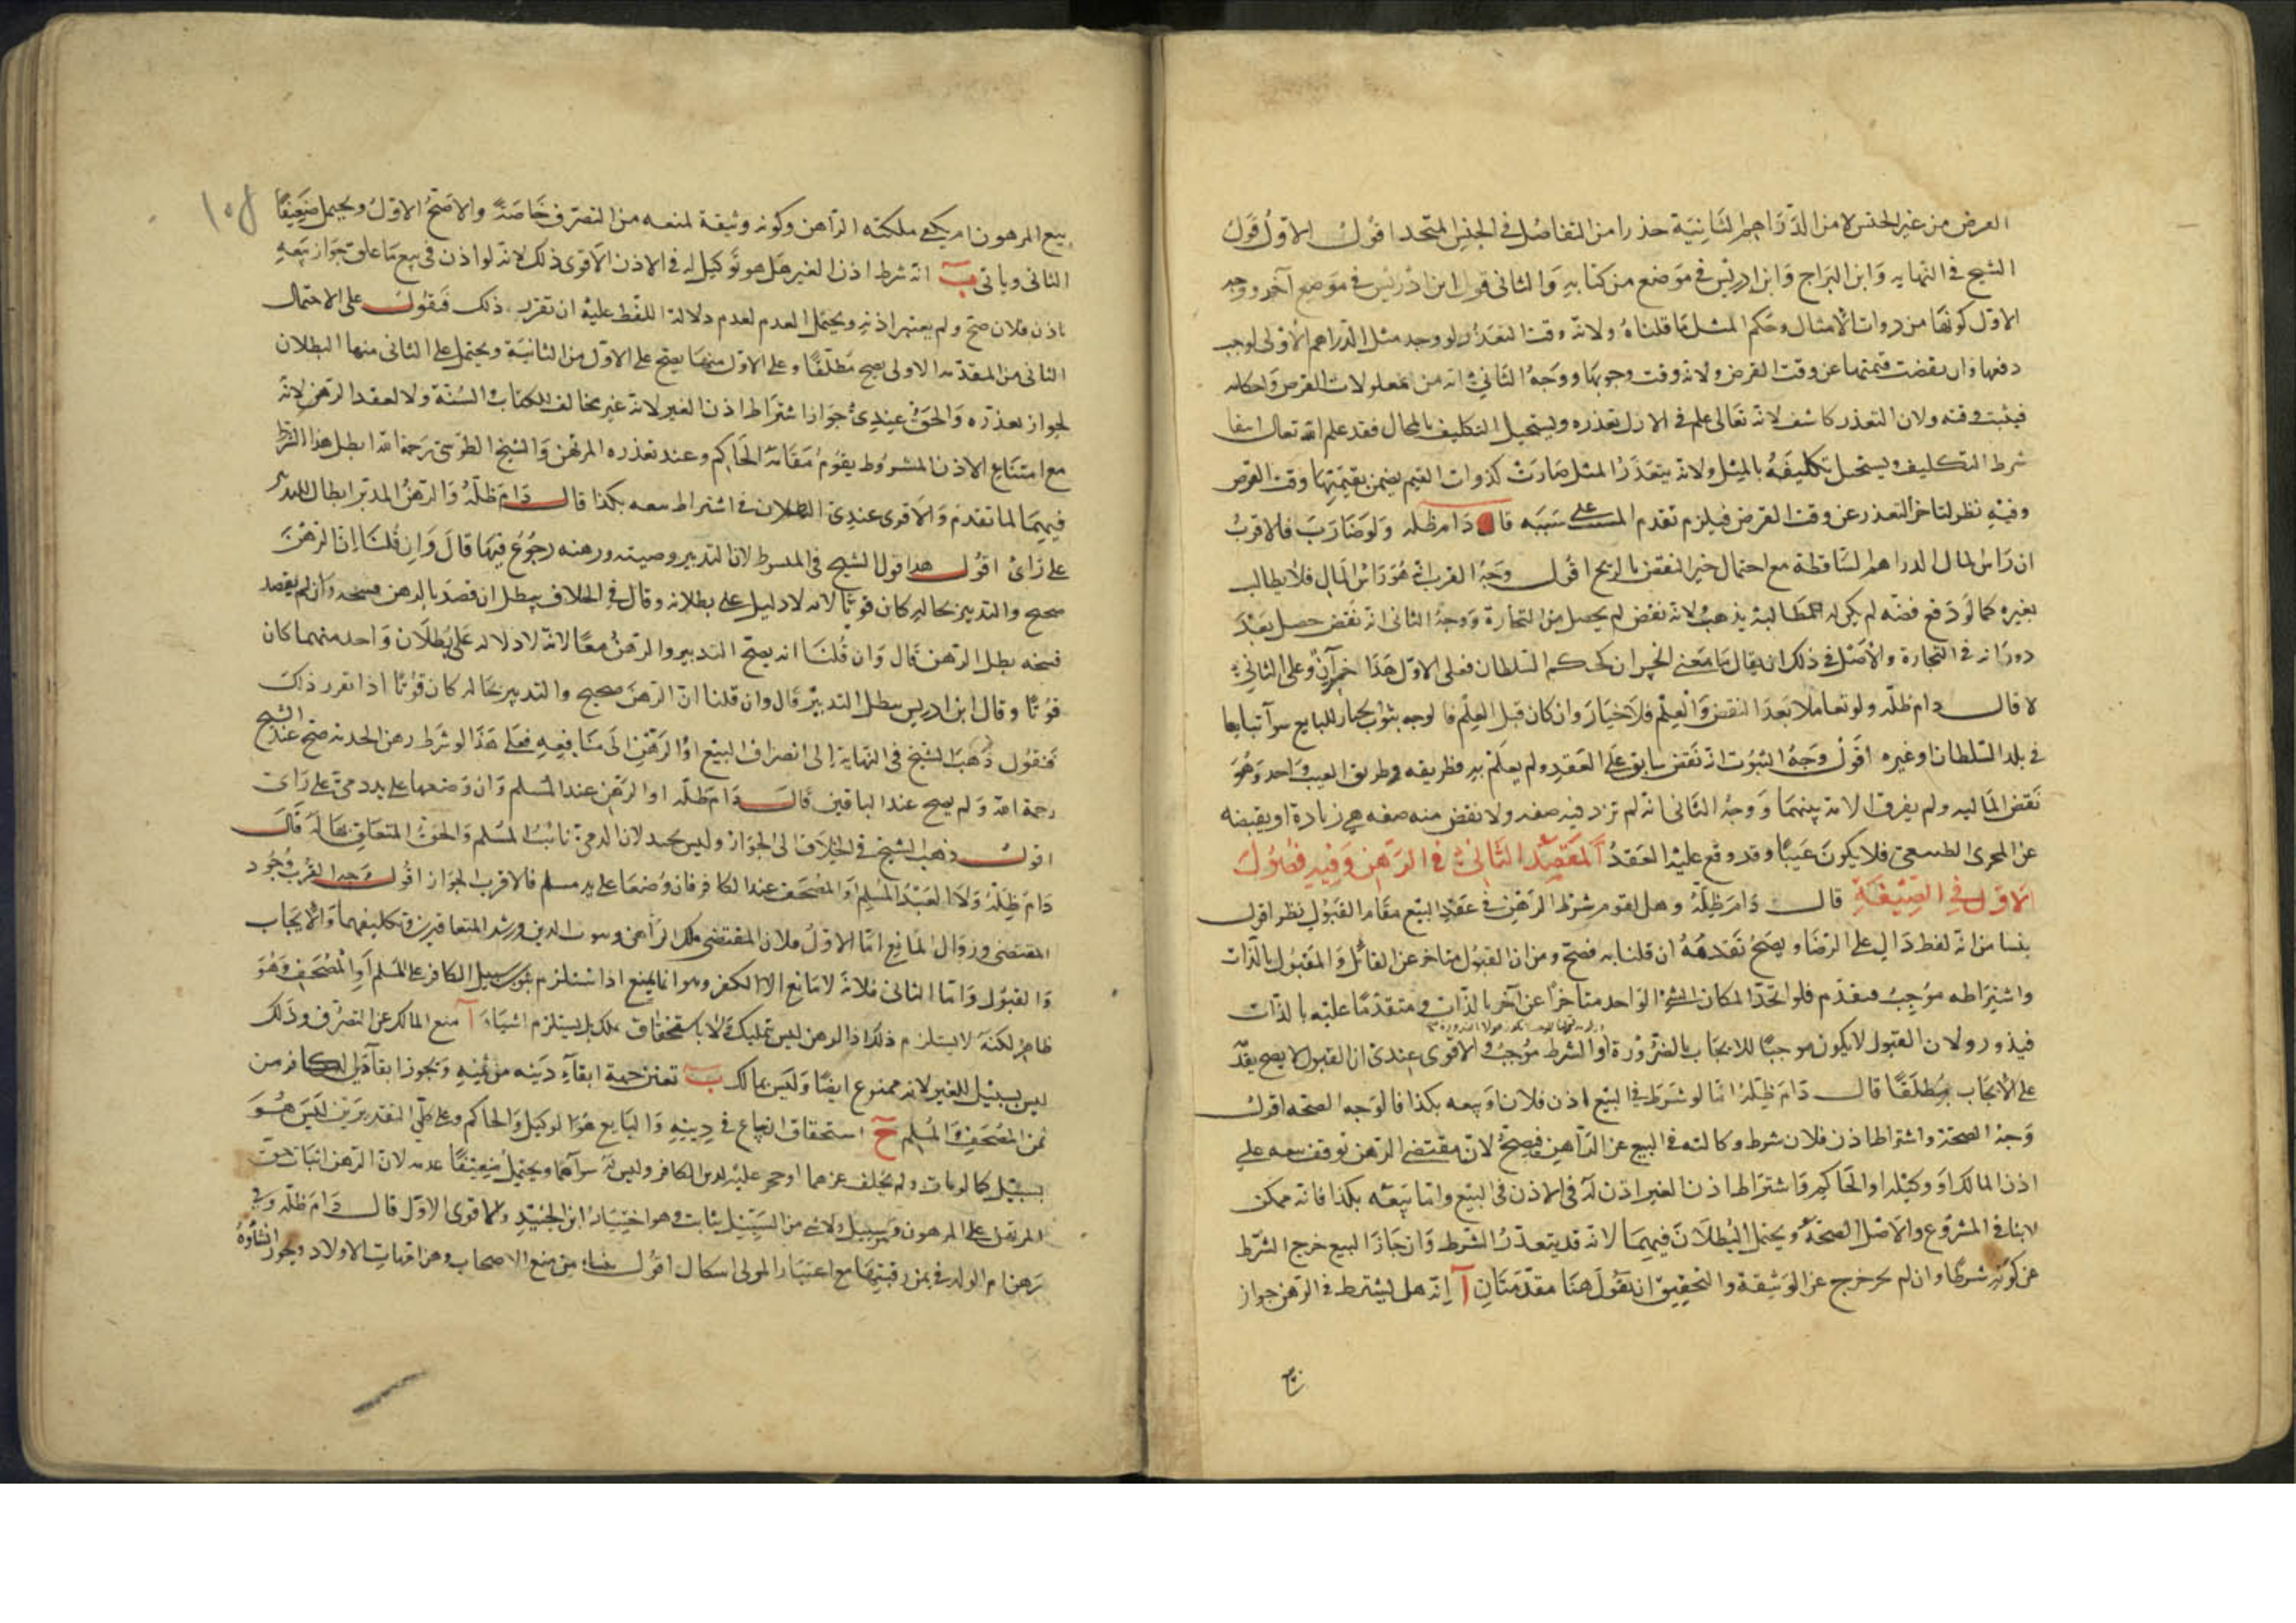 العرض من غير الجنس لا من الدراهم الثانية حذرا من التفاضل في الجنس المتحد اقول الاول قول
الشيخ في النهايه وابن البراج وابن ادريس في موضع من كتابه والثاني قول ابن ادريس في موضع آخر ووجه
الاول كونها من ذوات الامثال وحكم المثل ما قلناه ولانه وقت التعذر لو وجد مثل الدراهم الاولى لوجب
دفعها وان نقصت قيمتها عن وقت القرض ولانه وقت وجوبها ووجه الثاني انه من معلولات القرض واحكامه
فيثبت وقته ولان التعذر كاشف لانه تعالى علم في الازل تعذره ويستحيل التكليف بالمحال فقد علم الله تعالى انتفا
شرط التكليف ويستحيل تكليفه بالمثل ولانه بتعذر المثل صارت كذوات القيم يضمن بقيمتها وقت القرض
وفيه نظر لتاخر التعذر عن وقت القرض فيلزم تقدم المسبب على سببه قال دام ظله ولو ضارب فالاقرب
ان راس المال الدراهم الساقطة مع احتمال جبر النقص بالربح اقول وجه القرب انه هو راس المال فلا يطالب
بغيره كما لو دفع فضه لم يكن له المطالبة بذهب ولانه نقص لم يحصل من التجارة ووجه الثاني انه نقص حصل بعد
دورانه في التجارة والاصل في ذلك ان يقال ما معنى الخسران بحكم السلطان فعلى الاول هذا خسران وعلى الثاني
لا قال دام ظله ولو تعاملا بعد النقص والعلم فلا خيار وان كان قبل العلم فالوجه ثبوت الخيار للبايع سوآ تبايعا
في بلد السلطان او غيره اقول وجه الثبوت انه نقص سابق على العقد ولم يعلم به فطريقه وطريق العيب واحد وهو
نقص الماليه ولم يفرق الامه بينهما ووجه الثاني انه لم تزد فيه صفه ولا نقص منه صفه هي زيادة او نقيصه
عن المجرى الطبيعي فلا يكون عيبا وقد وقع عليه العقد المقصد الثاني في الرهن وفيه فصول
الاول في الصيغة قال دام ظله وهل يقوم شرط الرهن في عقد البيع مقام القبول نظر اقول
ينشا من انه لفظ دال على الرضا ويصح تقدمه ان قلنا به فصح ومن ان القبول متاخر عن القائل والمقبول بالذات
واشتراطه موجب فتقدم فلو اتحدا لكان الشئ الواحد متاخرا عن آخر بالذات ومتقدما عليه بالذات
فيدور ولان القبول لا يكون موجبا للايجاب بالضرورة والشرط موجب والاقوى عندي ان القبول لا يصح تقدمه
على الايجاب مطلقا قال دام ظله اما لو شرط في البيع اذن فلان او بيعه بكذا فالوجه الصحه اقول
وجه الصحة واشتراط اذن فلان شرط وكالته في البيع عن الراهن فيصح لان مقتضى الرهن توقف بيعه على
اذن المالك او وكيله او الحاكم فاشتراط اذن الغير اذن له في الاذن في البيع واما بيعه بكذا فانه ممكن
لا ينافي المشروع والاصل الصحة ويحتمل البطلان فيهما لانه قد يتعذر الشرط وان جاز البيع خرج الشرط
عن كونه شرطا وان لم يجز خرج عن الوثيقة والتحقيق ان نقول هنا مقدمتان آ انه هل يشترط في الرهن جواز
١٥٤
بيع المرهون ام يكفي ملكته الراهن وكونه وثيقة لمنعه من التصرف خاصة والاصح الاول ويحتمل ضعيفا
الثاني وياتي ب انه شرط اذن الغير هل هو توكيل له في الاذن الاقوى ذلك لانه لو اذن في بيع ما علق جواز بيعه
باذن فلان صح ولم يعتبر اذنه ويحتمل العدم لعدم دلالة اللفظ عليه ان تقرر ذلك فنقول على الاحتمال
الثاني من المقدمه الاولى يصح مطلقا وعلى الاول منها يصح على الاول من الثانية ويحتمل على الثاني منها البطلان
لجواز تعذره والحق عندي جواز اشتراط اذن الغير لانه غير مخالف للكتاب والسنة ولا لعقد الرهن لانه
مع امتناع الاذن المشروط يقوم مقامه الحاكم وعند تعذره المرتهن والشيخ الطوسي رحمه الله ابطل هذا الشرط
فيهما لما تقدم والاقوى عندي البطلان في اشتراط بيعه بكذا قال دام ظله والرهن المدبر ابطال للتدبير
على راى اقول هذا قول الشيخ في المبسوط لان التدبير وصيته ورهنه رجوع فيها قال وان قلنا ان الرهن
صحيح والتدبير بحاله كان قويا لانه لا دليل على بطلانه وقال في الخلاف يبطل ان قصد بالرهن فسخه وان لم يقصد
فسخه بطل الرهن قال وان قلنا انه يصح التدبير والرهن معا لانه لا دلاله على بطلان واحد منهما كان
قويا وقال ابن ادريس يبطل التدبير قال وان قلنا ان الرهن صحيح والتدبير بحاله كان قويا اذا تقرر ذلك
فنقول ذهب الشيخ في النهاية الى انصراف البيع او الرهن الى منافعه فعلى هذا لو شرط رهن الخدمه صح عند الشيخ
رحمه الله ولم يصح عند الباقين قال دام ظله او الرهن عند المسلم وان وضعها على يد ذمى على راى
اقول ذهب الشيخ في الخلاف الى الجواز وليس بجيد لان الذمي نائب المسلم والحق المتعلق بها له قال
دام ظله ولا العبد المسلم او المصحف عند الكافر فان وضعا على يد مسلم فالاقرب الجواز اقول وجه القرب وجود
المقتضى وزوال المانع اما الاول فلان المقتضى ملك الراهن وثبوت الدين ورشد المتعاقدين وتكليفهما والايجاب
والقبول واما الثاني فلانه لا مانع الا الكفر وهو انما يمنع اذا استلزم ثبوت سبيل الكافر على المسلم او المصحف وهو
ظاهر لكنه لا يستلزم ذلك اذ الرهن ليس تمليك ولا باستحقاق ملك بل يستلزم اشياء آ منع المالك عن التصرف وذلك
ليس بسبيل للغير لانه ممنوع ايضا وليس بمالك ب تعين جهة ابقآء دينه من ثمنه ويجوز ابقآء دين الكافر من
ثمن المصحف والمسلم ج استحقاق البياع في دينه والبايع هو الوكيل والحاكم وعلى كلي التقديرين ليس هو
بسبيل كما لو مات ولم يخلف غيرهما او حجر عليه لدين الكافر وليس له سواهما ويحتمل ضعيفا عدمه لان الرهن اثبات حق
المرتهن على المرهون وسبيل ولا شئ من السبيل بثابت وهو اختيار ابن الجنيد والاقوى الاول قال دام ظله وفي
رهن ام الولد في ثمن رقبتها مع اعتبار المولى اشكال اقول ينشا من منع الاصحاب رهن امهات الاولاد ويجوز انشاؤه